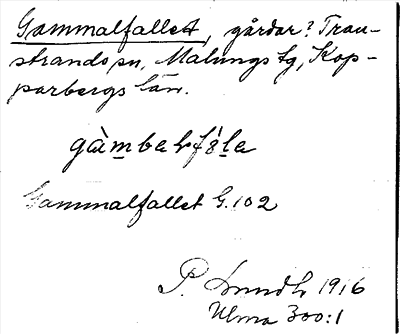 Gammalfallet, gårdar? Tran-
strands sn, Malungs tg, Kop-
parbergs län.
Gammalfallet G. 102
P. 1916
Ulma 300:1